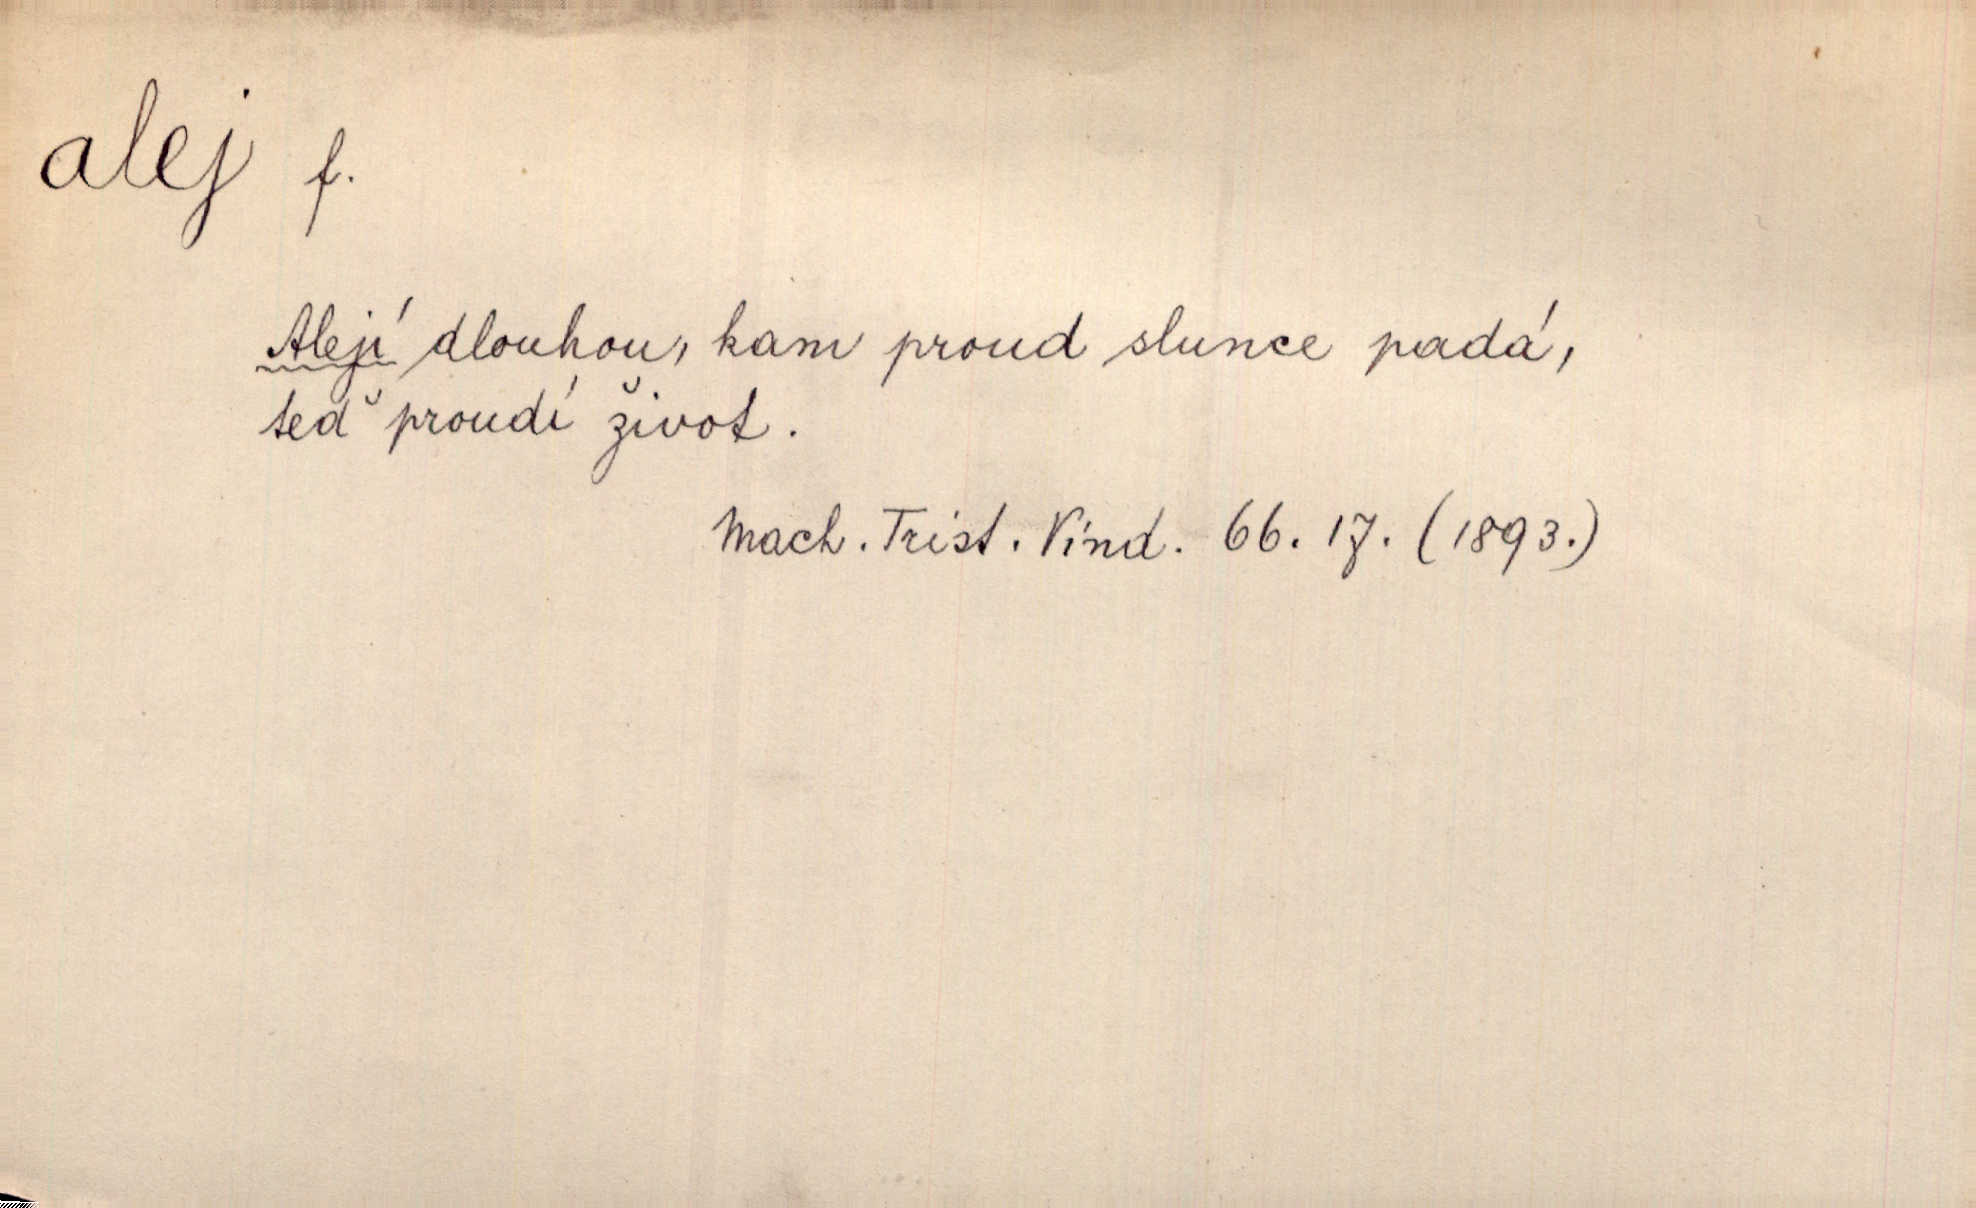 alej f.
Alejí dlouhou, kam proud slunce padá,
teď proudí život.
Mach. Trist. Vind. 66. 17. (1893.)